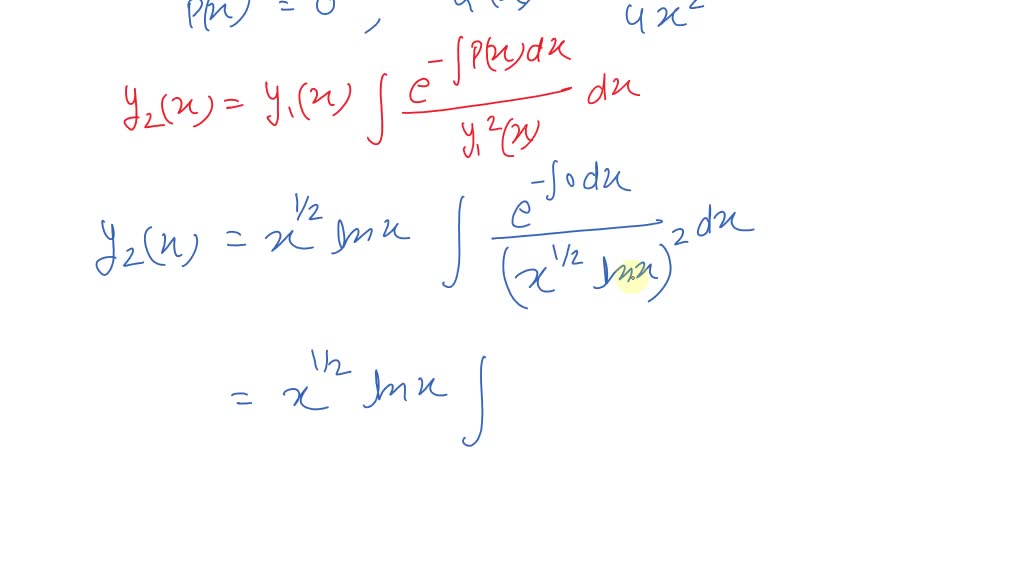 P(x) = 0 , 4x²
y₂(x) = y₁(x) ∫ e^(-∫P(x)dx) / y₁²(x) dx
y₂(x) = x^(1/2) ln x ∫ e^(-∫0dx) / (x^(1/2) ln x)² dx
= x^(1/2) ln x ∫